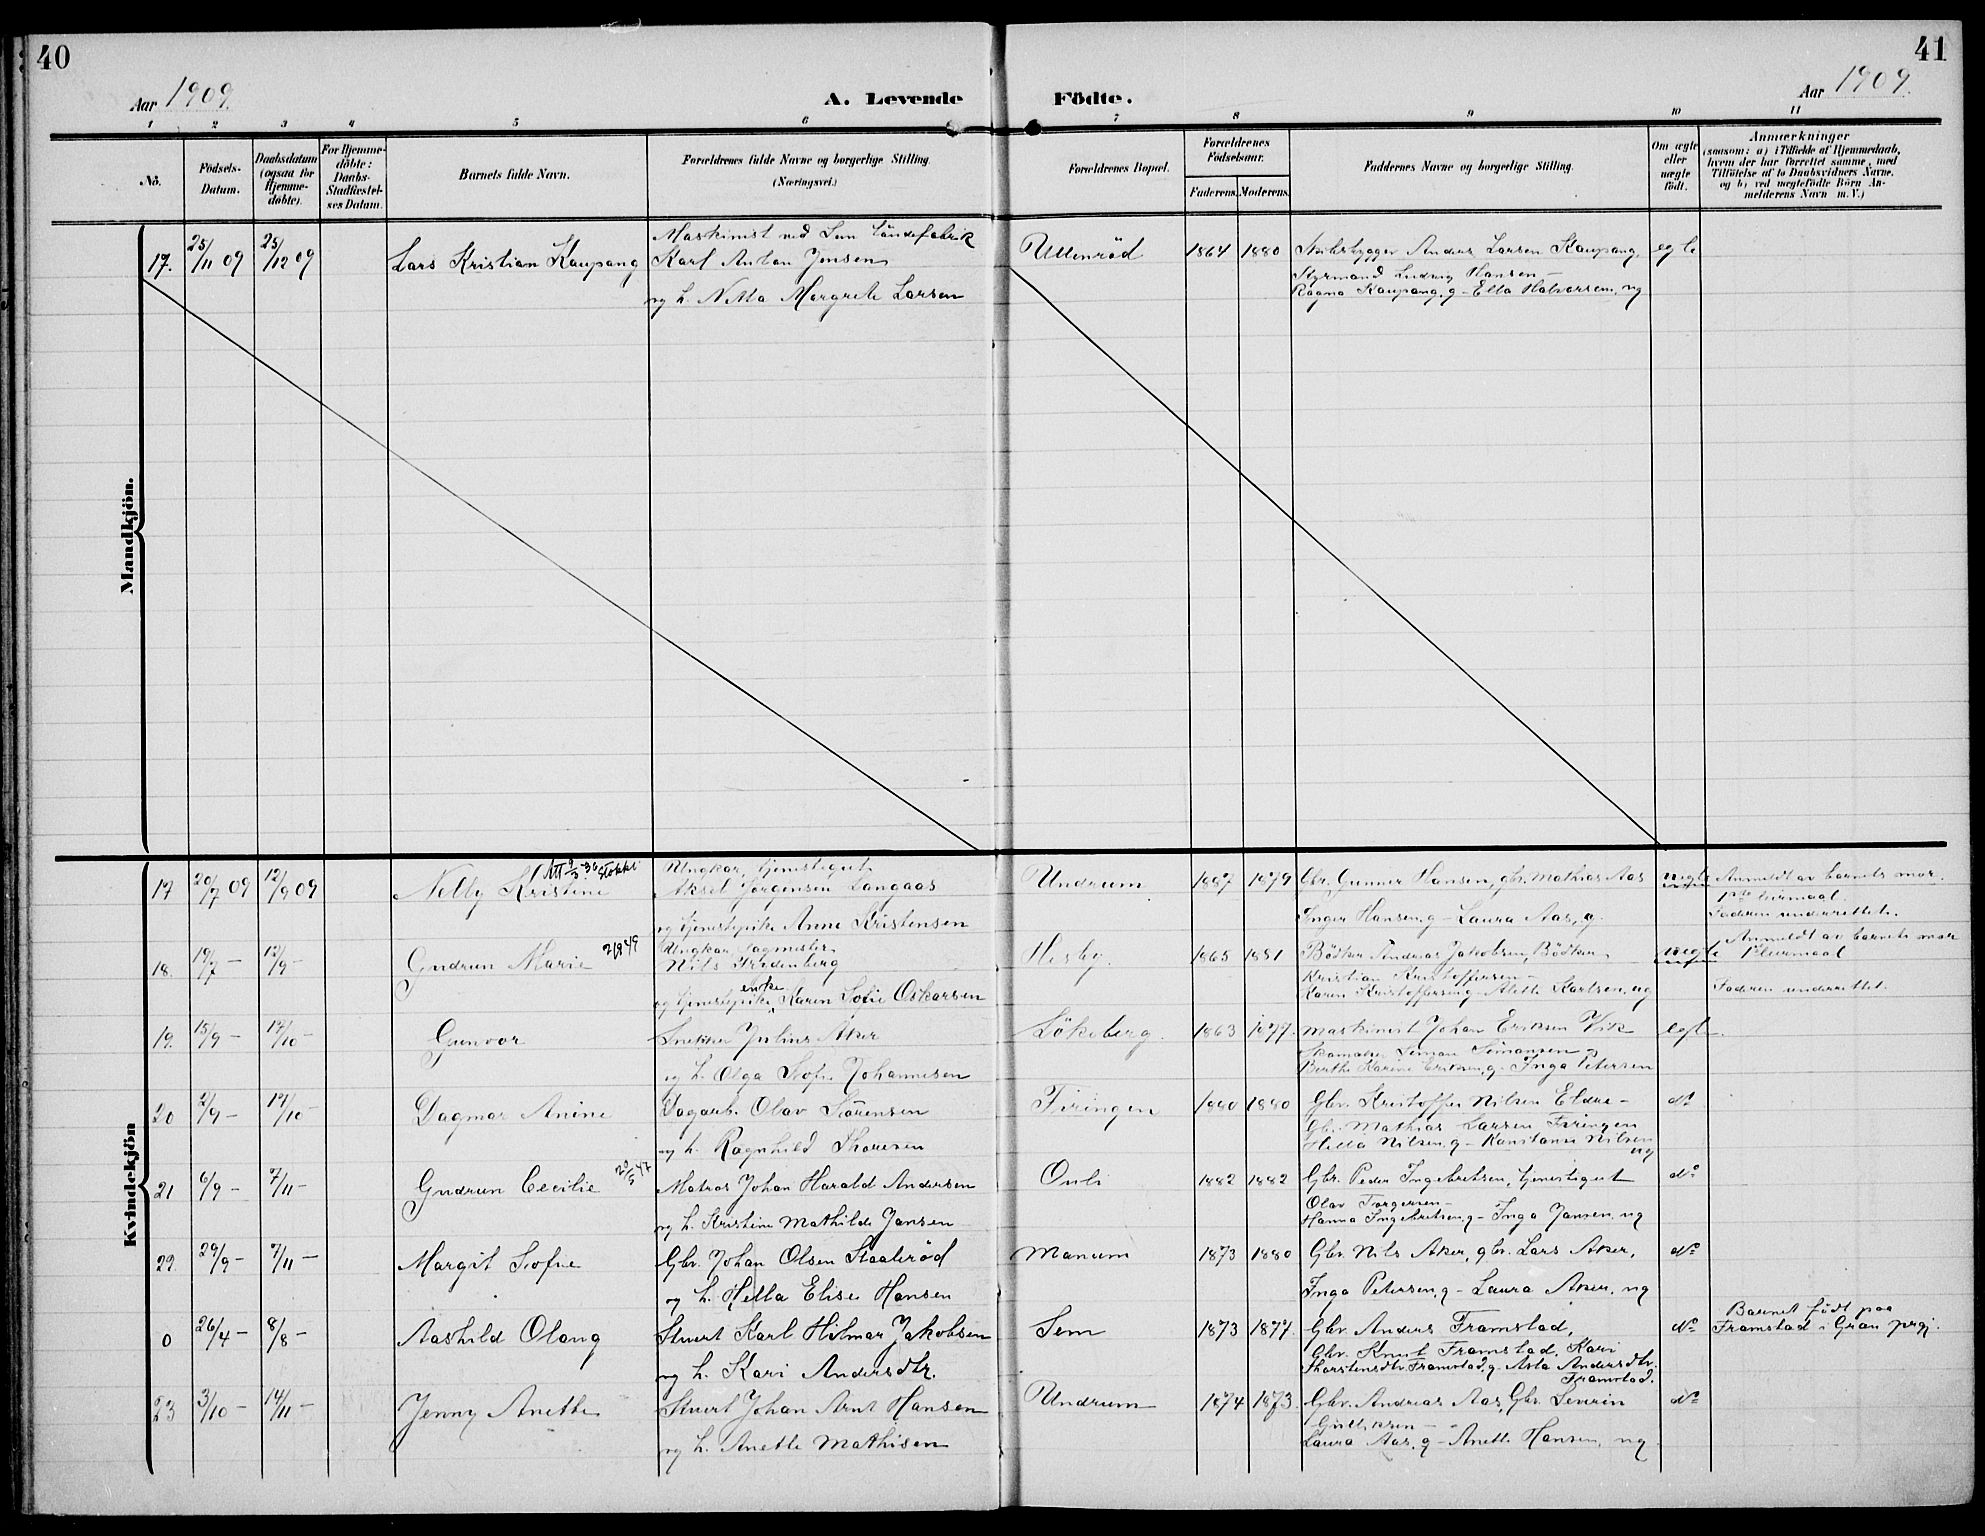 40
41
Aar 1909.
A. Levende Födte.
Aar 1909.
1 2 3 4 5 6 7 8 9 10 11
No.
Födsels-Datum.
Daabsdatum (ogsaa for Hjemme-döbte).
For Hjemme-döbte: Daabs-Stadfæstel-ses Datum.
Barnets fulde Navn.
Forældrenes fulde Navne og borgerlige Stilling.
(Næringsvei.)
Forældrenes Bopæl.
Forældrenes Födselsaar.
Faderens. Moderens.
Faddernes Navne og borgerlige Stilling.
Om ægte eller uægte födt.
Anmærkninger
(saasom: a) i Tilfælde af Hjemmedaab,
hvem der har forrettet samme, med
Tilföielse af to Daabsvidners Navne,
og b) ved uægtefödte Börn An-
melderens Navn m.V.)
Mandkjön.
Maskinist ved Sem Töndefabrik
17. 25/11 09 25/12 09 Lars Kristian Kaupang Karl Anton Jensen Ullenröd 1864 1880 Anders Larsen Kaupang, egte
Styrmand Ludvig Hansen –
og h. Netta Margrete Larsen Ragna Kaupang, g – Ella Halvorsen, ug
Kvindekjön
Ungkar, tjenestegut
17 20/7 09 12/9 09 Nelly Kristine Aksel Jörgensen Langaas Undrum 1887 1879 Gbr. Gunner Hansen, gbr. Mathias Aas uegte Anmeldt av barnets mor.
1ste leiermaal.
og tjenestepike Anne Kristensen Inger Hansen, g – Laura Aas, g. Faderen underrettet.
18. 19/7 – 12/9 – Gudrun Marie Ungkar Sagmester Nils Fredenberg Hesby. 1865 1881 Bödker Andreas Jakobsen, Bödker uegte Anmeldt av barnets mor
1 leiermaal
Kristian Kristoffersen –
og tjenestepike enke Karen Sofie Oskarsen Karen Kristoffersen g – Alette Karlsen, ug Faderen underrettet.
19. 15/9 – 17/10 – Gunvor Snekker Julius Aker Lökeberg. 1863 1879. Maskinist Johan Eriksen Vik egte.
Skomaker Simon Simonsen
og h. Olga Sofie Johannesen Berthe Karine Eriksen, g – Inga Petersen
20 2/9 – 17/10 – Dagmar Anine Dagarb. Olav Sörensen Firingen 1880 1880 Gbr. Kristoffer Nilsen Eldre – do
Gbr. Mathias Larsen Firingen
og h. Ragnhild Thoresen Hella Nilsen, g – Konstanse Nilsen
ug
21 6/9 – 7/11 – Gudrun Cecilie 20/5 47 Matros Johan Harald Andersen Onli 1882 1882 Gbr. Peder Ingebretsen, tjenestegut do
Olav Torgersen –
og h. Kristine Mathilde Jansen Hanna Ingebretsen g – Inga Jansen, ug
22 29/9 – 7/11 – Margit Sofie Gbr. Johan Olsen Staaleröd Manum 1873 1880 Gbr. Nils Aker, gbr. Lars Aker, do
og h. Hella Elise Hansen Inga Petersen, g – Laura Aker, ug
0 26/4 – 8/8 – Aashild Olaug Stuert Karl Hilmar Jakobsen Sem 1873 1877. Gbr. Anders Framstad, do Barnet födt paa
Framstad i Gran prgj.
Gbr. Knut Framstad, Kari
og h. Kari Andersdtr. Thorstensdtr. Framstad, g – Asta Andersdtr.
Framstad.
23 3/10 – 14/11 – Jenny Anette Stuert Johan Arnt Hansen Undrum 1874 1873. Gbr. Andreas Aas, Gbr. Severin do
Gulliksen –
og h. Anette Mathisen Laura Aas, g – Anette Hansen, ug